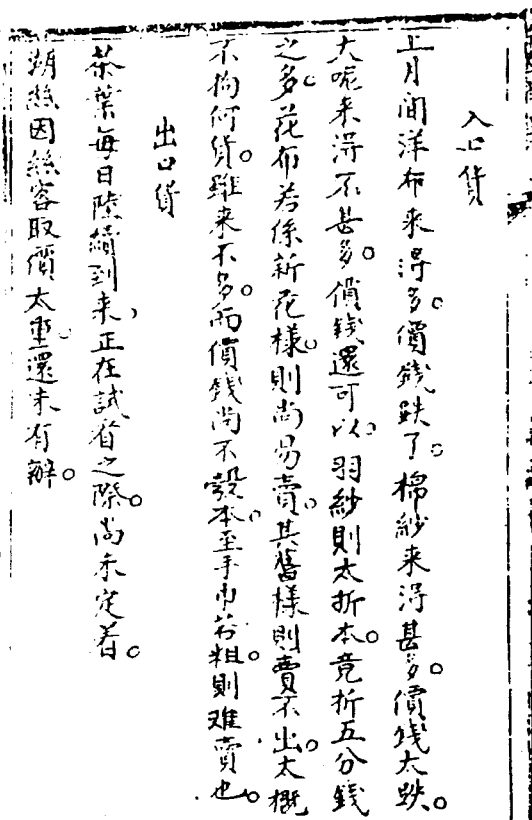 入口貨
上月间洋布来淂多。價錢跌了。棉紗来淂甚多。價錢太跌。
大呢来淂不甚多。價錢還可以。羽紗則太折本。竟折五分錢
之多。花布若係新花樣。則尚易賣。其舊樣則賣不出。大概
不拘何貨。雖来不多。而價錢尚不彀本。至手巾若粗。則难賣也。
出口貨
茶葉每日陸續到来、正在試省之際。尚未定着。
湖絲因絲客取價太重。還未有辦。